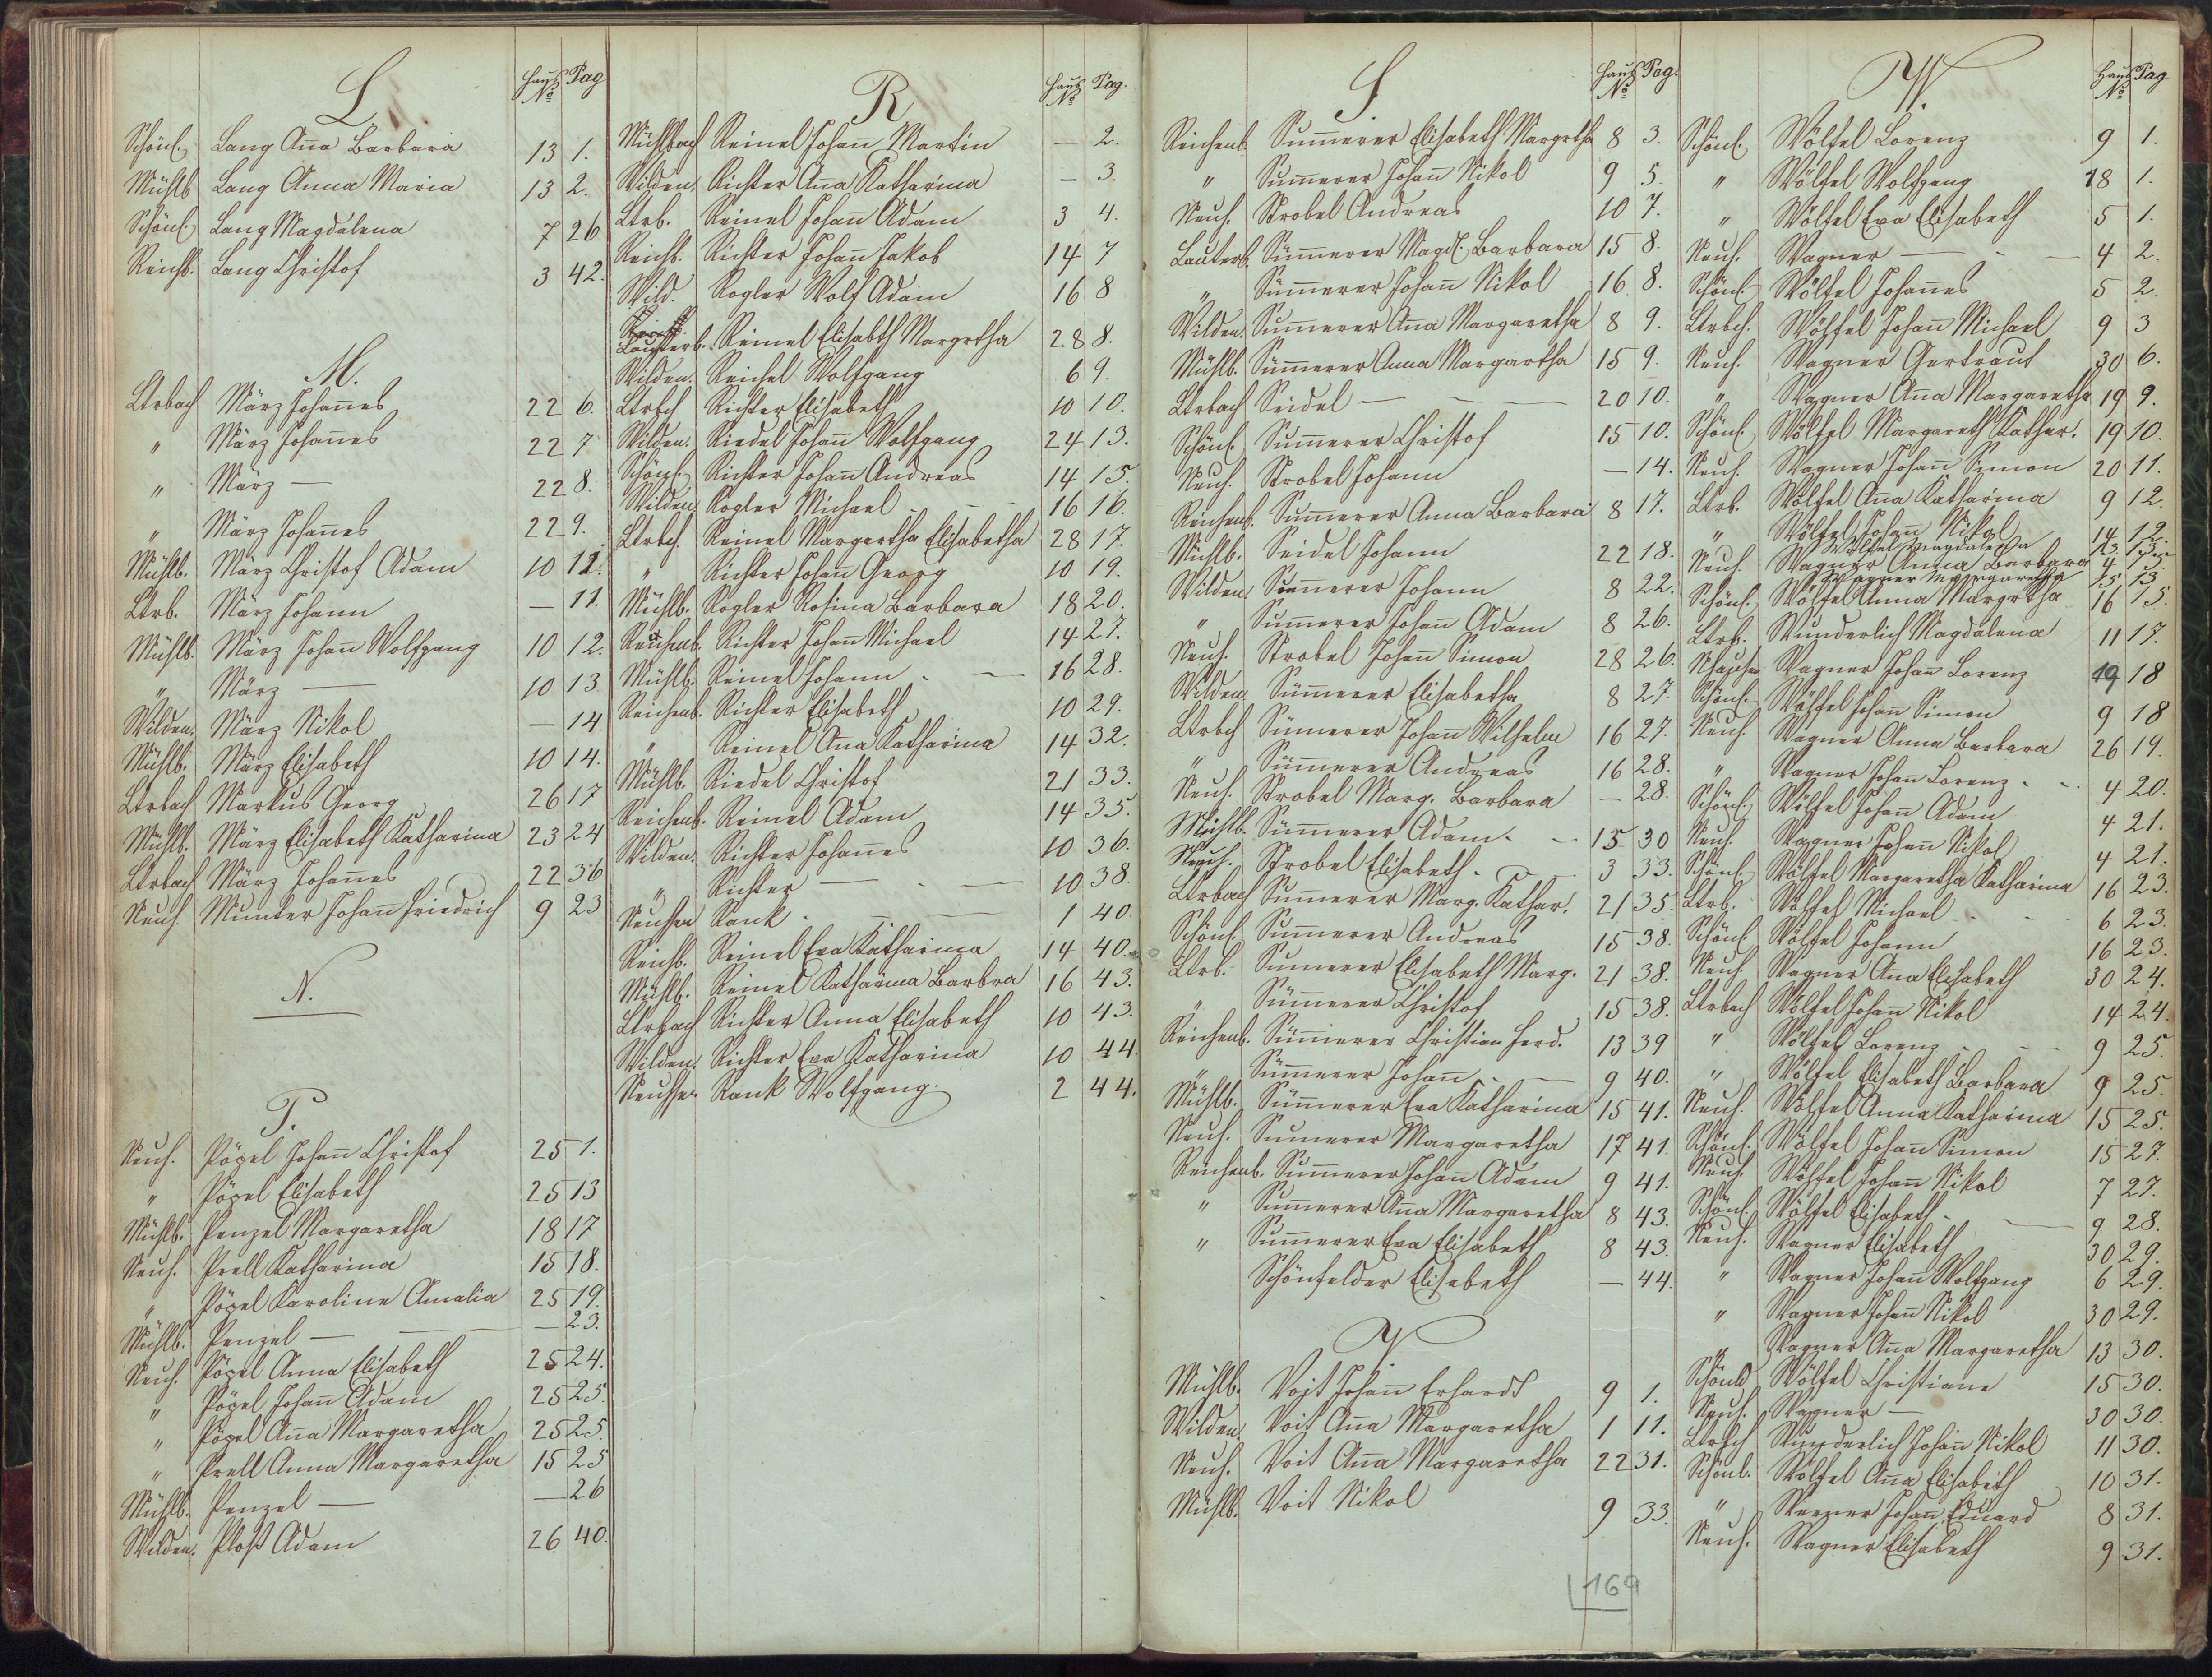 L.
Haus No Pag
Schönl. Lang Ana Barbara 13 1.
Mühlb Lang Anna Maria 13 2.
Schönl. Lang Magdalena 7 26
Reichb. Lang Christof 3 42.
M.
Ltrbach März Johañes 22 6.
" März Johañes 22 7
" März — 22 8.
" März Johañes 22 9.
Mühlb. März Christof Adam 10 11.
Ltrb. März Johann — 11.
Mühlb. März Johañ Wolfgang 10 12.
" März — 10 13
Wilden. März Nikol — 14.
Mühlb. März Elisabeth 10 14.
Ltrbach Markus Georg 26 17
Mühlb. März Elisabeth Katharina 23 24
Ltrbach März Johañes 22 36
Neuh. Munker Johañ Friedrich 9 23
N.
P.
Neuh. Pöpel Johañ Christof 25 1.
" Pöpel Elisabeth 25 13
Mühlb. Penzel Margaretha 18 17
Neuh. Prell Katharina 15 18.
" Pöpel Karoline Amalia 25 19.
Mühlb. Penzel — — 23.
Neuh. Pöpel Anna Elisabeth 25 24.
" Pöpel Johañ Adam 25 25.
" Pöpel Aña Margaretha 25 25.
" Prell Anna Margaretha 15 25
Mühlb. Penzel — — 26
Wilden. Ploß Adam 26 40.
R
Haus No Pag.
Mühlbach Reinel Johañ Martin — 2.
Wilden. Richter Aña Katharina — 3.
Ltrb. Reinel Johañ Adam 3 4.
Reichb. Richter Johañ Jakob 14 7
Wild. Rogler Wolf Adam 16 8
Lauterb. Reinel Elisabth Margrtha 28 8.
Wilden. Reichel Wolfgang 6 9.
Ltrbch Richter Elisabeth 10 10.
Wilden. Riedel Johañ Wolfgang 24 13.
Schönl. Richter Johañ Andreas 14 15.
Wilden. Rogler Michael 16 16.
Ltrbch. Reinel Margertha Elisabetha 28 17.
" Richter Johañ Georg 10 19.
Mühlb. Rogler Rosina Barbara 18 20.
Reichenb. Richter Johañ Michael 14 27.
Mühlb. Reinel Johann — 16 28.
Reichenb. Richter Elisabeth 10 29.
" Reinel Aña Katharina 14 32.
Mühlb. Riedel Christof 21 33.
Reichenb. Reinel Adam 14 35.
Wilden. Richter Johañes 10 36.
" Richter — 10 38.
Neuhsen Rank — 1 40.
Reichb. Reinel Eva Katharina 14 40.
Mühlb. Reinel Katharina Barbra 16 43.
Ltrbach Richter Anna Elisabeth 10 43.
Wilden. Richter Eva Katharina 10 44.
Neuhsen Rank Wolfgang 2 44.
S.
Haus No Pag.
Reichenb. Sum̃erer Elisabeth Margrtha 8 3.
" Sum̃erer Johañ Nikol 9 5.
Neuh. Strobel Andreas 10 7.
Lauterb. Sum̃erer Magd. Barbara 15 8.
" Sum̃erer Johañ Nikol 16 8.
Wilden. Sum̃erer Aña Margaretha 8 9.
Mühlb. Sum̃erer Anna Margartha 15 9.
Ltrbach Seidel — 20 10.
Schönl. Sum̃erer Christof 15 10.
Neuh. Strobel Johann — 14.
Reichenb. Sum̃erer Anna Barbara 8 17.
Mühlb. Seidel Johann 22 18.
Wilden. Sum̃erer Johann 8 22.
" Sum̃erer Johañ Adam 8 26.
Neuh. Strobel Johañ Simon 28 26.
Wilden. Sum̃erer Elisabetha 8 27.
Ltrbch Sum̃erer Johañ Wilhelm 16 27.
" Sum̃erer Andreas 16 28.
Neuh. Strobel Marg. Barbara — 28.
Mühlb. Sum̃erer Adam 15 30
Neuh. Strobel Elisabeth — 3 33.
Ltrbach Sum̃erer Marg. Kathar. 21 35.
Schönl. Sum̃erer Andreas 15 38.
Ltrb. Sum̃erer Elisabeth Marg. 21 38.
" Sum̃erer Christof 15 38.
Reichenb. Sum̃erer Christian Ferd. 13 39
" Sum̃erer Johañ — 9 40.
Mühlb. Sum̃erer Eva Katharina 15 41.
Neuh. Sum̃erer Margaretha 17 41.
Reichenb. Sum̃erer Johañ Adam 9 41.
" Sum̃erer Aña Margaretha 8 43.
" Sum̃erer Eva Elisabeth 8 43.
Schönfelder Elisabeth — 44.
V
Mühlb. Voit Johañ Erhardt 9 1.
Wilden. Voit Aña Margaretha 1 11.
Neuh. Voit Aña Margaretha 22 31.
Mühlb. Voit Nikol 9 33.
169
W.
Haus No Pag
Schönl. Wölfel Lorenz 9 1.
" Wölfel Wolfgang 18 1.
" Wölfel Eva Elisabeth 5 1.
Neuh. Wagner — 4 2.
Schönl. Wölfel Johañes 5 2.
Ltrbch. Wölfel Johañ Michael 9 3
Neuh. Wagner Gertraut 30 6.
" Wagner Aña Margaretha 19 9.
Schönl. Wölfel Margareth Kathar. 19 10.
Neuh. Wagner Johañ Simon 20 11.
Ltrb. Wölfel Aña Katharina 9 12.
" Wölfel Johañ Nikol 14 12.
Wölfel Magdalena 13.
Neuh. Wagner Anna Barbara 4 13.
Wagner Margaretha 15 13
Schönl. Wölfel Anna Margrtha 16 15.
Ltrb. Wunderlich Magdalena 11 17.
Nhausen Wagner Johañ Lorenz 19 18
Schönl. Wölfel Johañ Simon 9 18
Neuh. Wagner Anna Barbara 26 19.
" Wagner Johañ Lorenz 4 20.
Schönl. Wölfel Johañ Adam 4 21.
Neuh. Wagner Johañ Nikol 4 21.
Schönl. Wölfel Margaretha Katharina 16 23.
Ltrb. Wölfel Michael 6 23.
Schönl. Wölfel Johann 16 23.
Neuh. Wagner Aña Elisabeth 30 24.
Ltrbach Wölfel Johañ Nikol 14 24.
" Wölfel Lorenz 9 25.
" Wölfel Elisabeth Barbara 9 25.
Neuh. Wölfel Anna Katharina 15 25.
Schönl. Wölfel Johañ Simon 15 27.
Neuh. Wölfel Johañ Nikol 7 27.
Schönl. Wölfel Elisabeth — 9 28.
Neuh. Wagner Elisabeth 30 29.
" Wagner Johañ Wolfgang 6 29.
" Wagner Johañ Nikol 30 29.
" Wagner Aña Margaretha 13 30.
Schönld Wölfel Christiane 15 30.
Neuh. Wagner — 30 30.
Ltrbch Wunderlich Johañ Nikol 11 30.
Schönl. Wölfel Aña Elisabeth 10 31.
" Werner Johañ Eduard 8 31.
Neuh. Wagner Elisabeth 9 31.